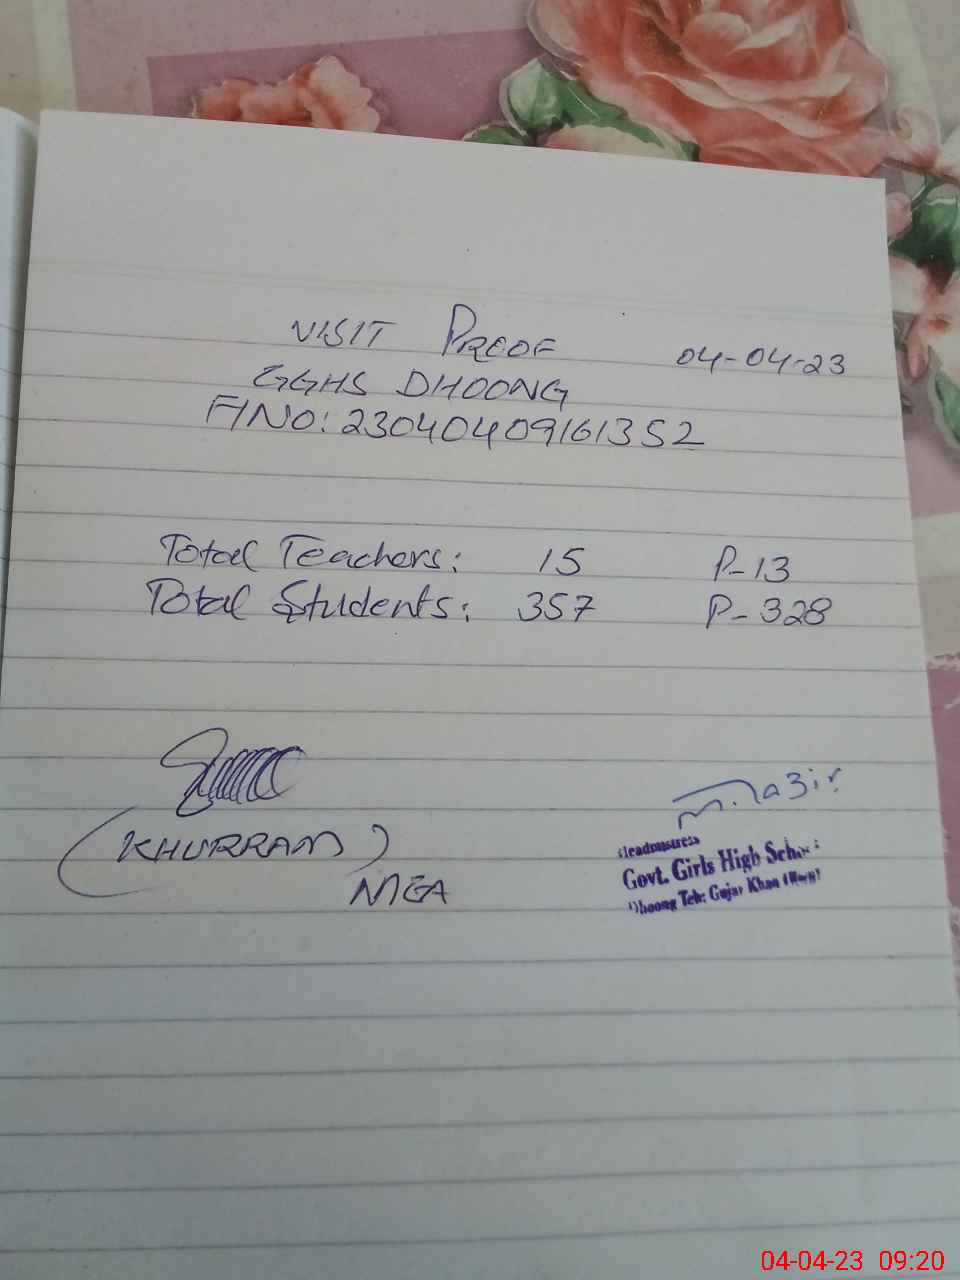 VISIT PROOF 04-04-23
GGHS DHOONG
FINO: 23040409161352
Total Teachers: 15 P-13
Total Students: 357 P-328
(KHURRAM)
MEA
Headmistress
Govt. Girls High School
Dhoong Teh: Gujar Khan (Rwp)
04-04-23 09:20